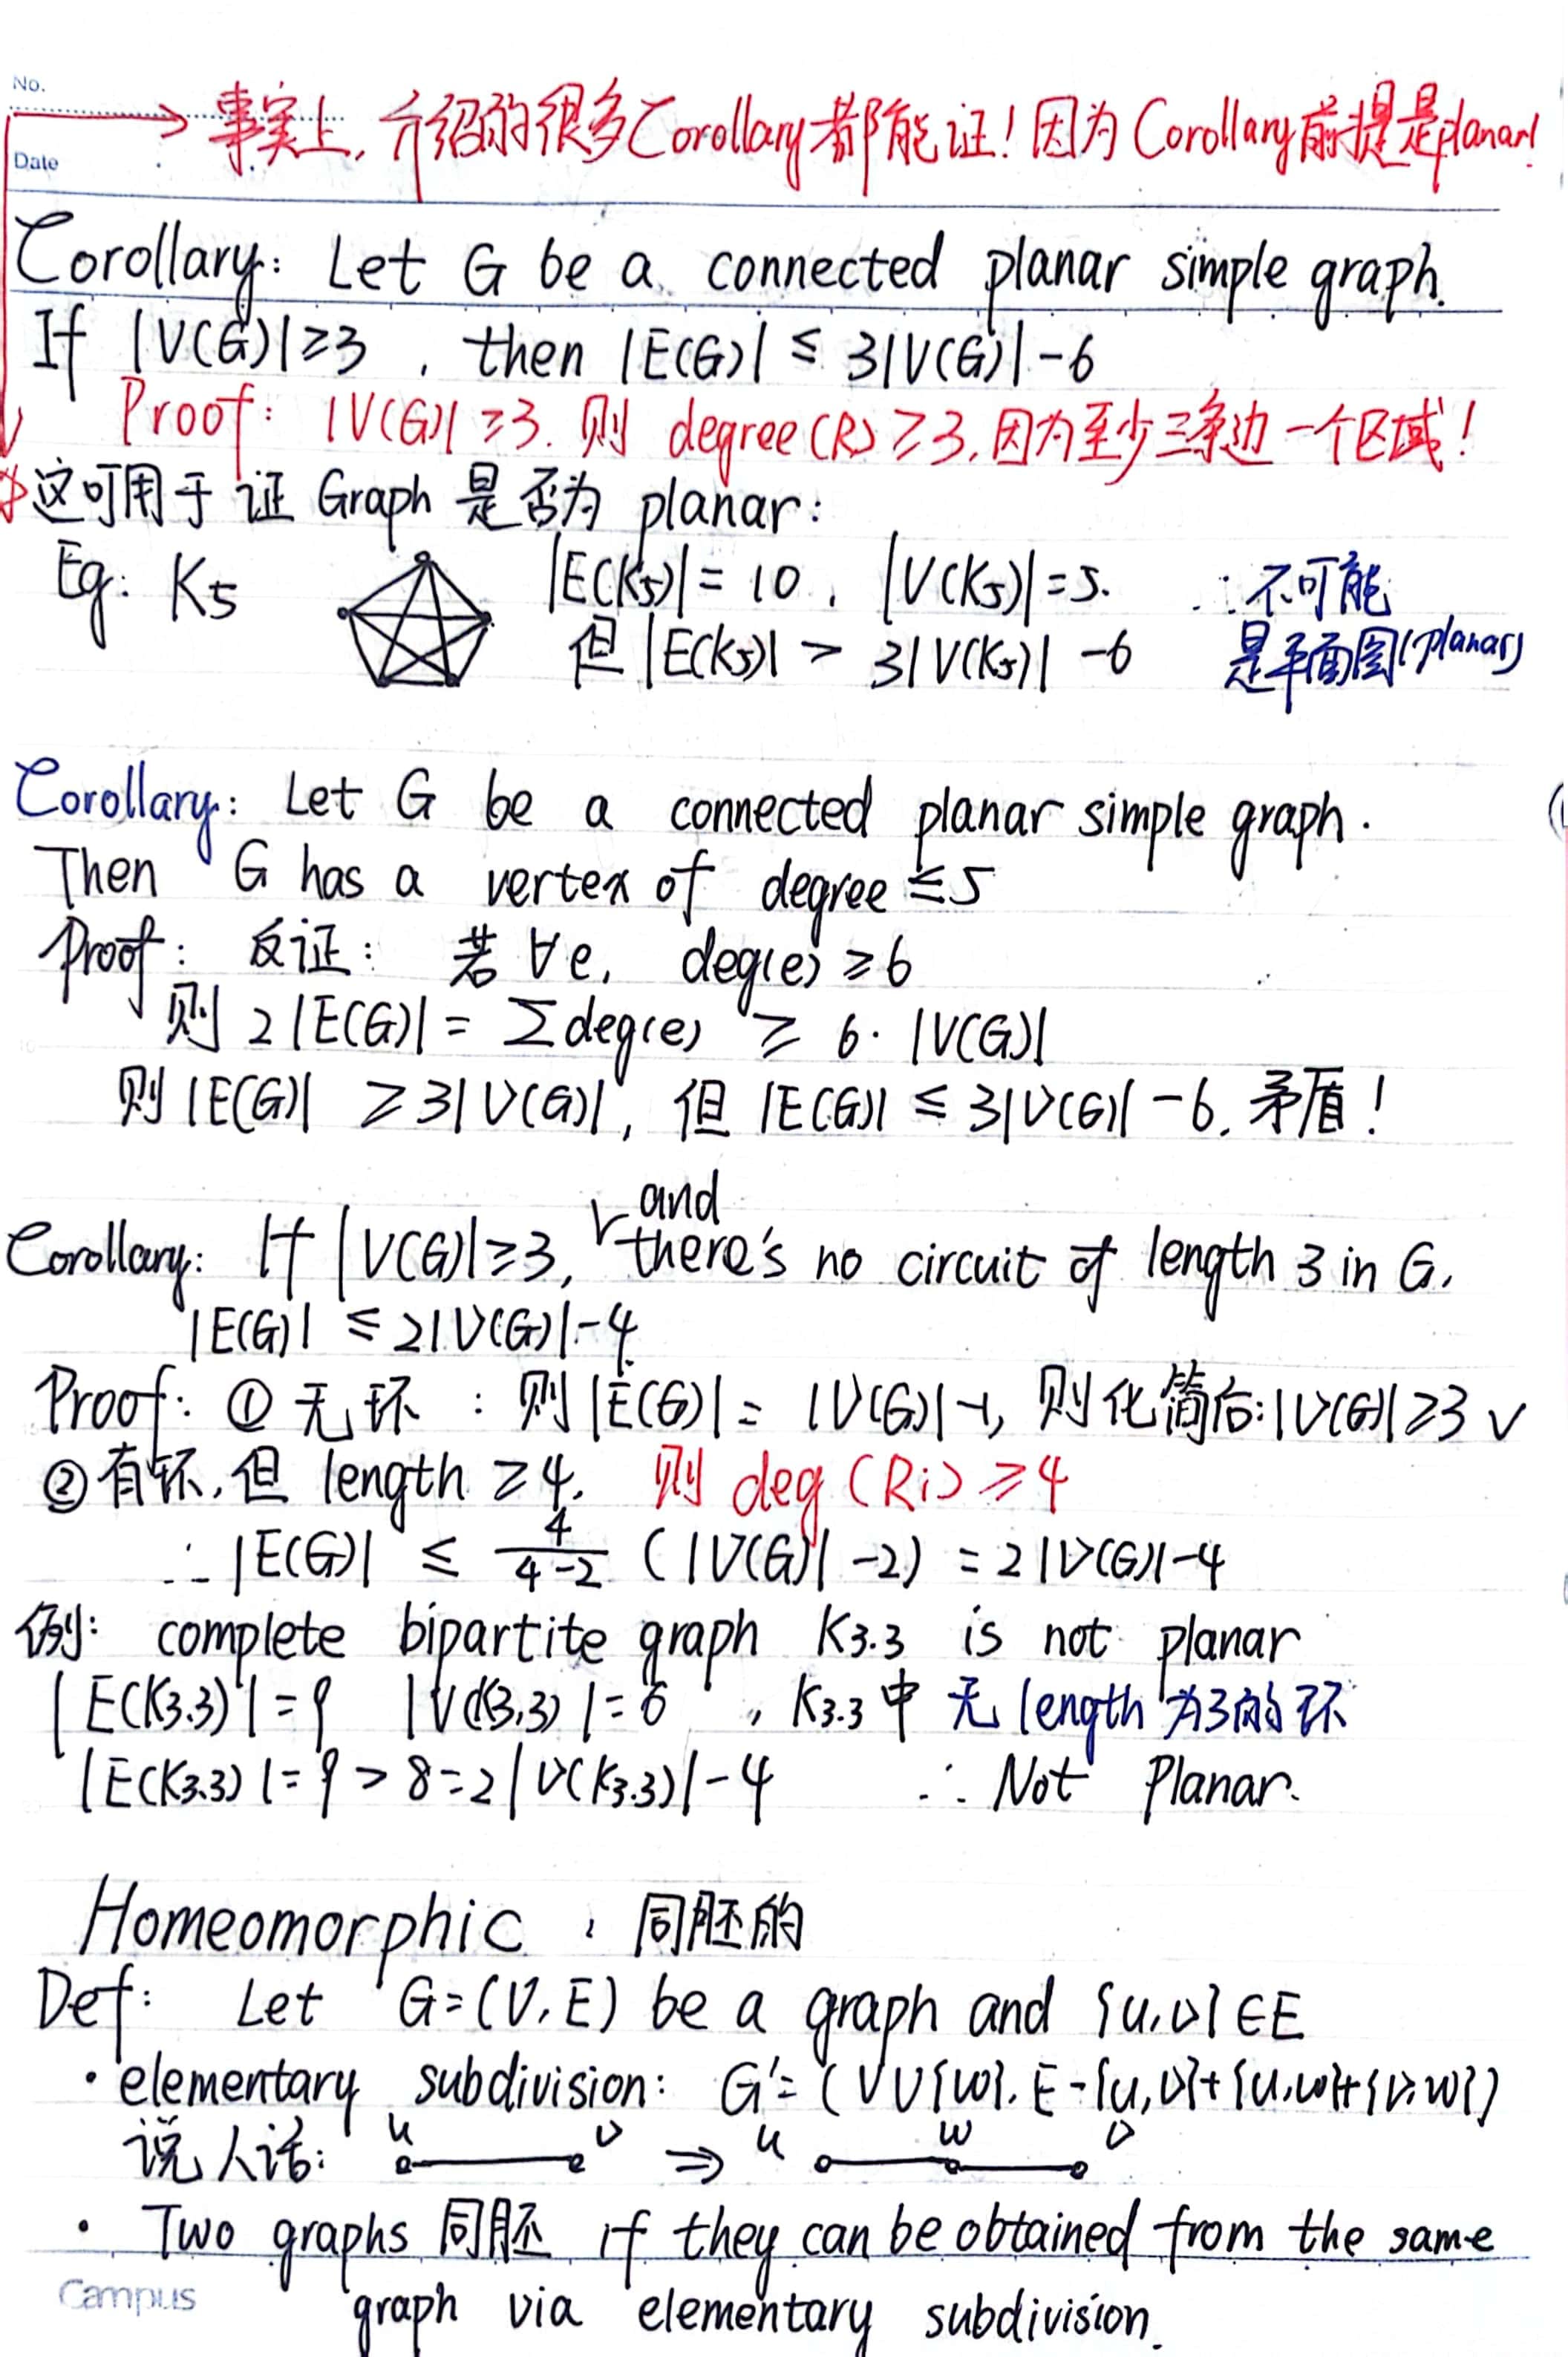 No.
→ 事实上, 介绍的很多Corollary都能证! 因为Corollary前提是planar!
Date
Corollary: Let G be a connected planar simple graph.
If |V(G)|≥3, then |E(G)| ≤ 3|V(G)|-6
Proof: |V(G)|≥3. 则 degree(R)≥3, 因为至少三条边一个区域!
这可用于证 Graph 是否为 planar:
Eg: K5 |E(K5)|=10, |V(K5)|=5. ∴不可能
但 |E(K5)| > 3|V(K5)| -6 是平面图(planar)
Corollary: Let G be a connected planar simple graph.
Then G has a vertex of degree ≤5
Proof: 反证: 若 ∀e, deg(e) ≥6
则 2|E(G)| = Σdeg(e) ≥ 6·|V(G)|
则 |E(G)| ≥3|V(G)|, 但 |E(G)| ≤ 3|V(G)|-6, 矛盾!
and
Corollary: If |V(G)|≥3, there's no circuit of length 3 in G,
|E(G)| ≤2|V(G)|-4
Proof: ① 无环: 则|E(G)|= |V(G)|-1, 则化简后:|V(G)|≥3 √
② 有环, 但 length ≥4, 则 deg(Ri) ≥4
∴ |E(G)| ≤ 4/(4-2) (|V(G)|-2) = 2|V(G)|-4
例: complete bipartite graph K3.3 is not planar
|E(K3.3)|=9 |V(K3,3)|=6, K3.3中 无 length 为3的环
|E(K3.3)|=9>8=2|V(K3.3)|-4 ∴ Not Planar.
Homeomorphic, 同胚的
Def: Let G=(V,E) be a graph and {u,v}∈E
· elementary subdivision: G'= (V∪{w}, E-{u,v}+{u,w}+{v,w})
说人话: u v ⇒ u w v
· Two graphs 同胚 if they can be obtained from the same
graph via elementary subdivision.
Campus